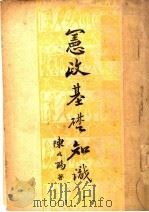 憲政基礎知識
陳
著